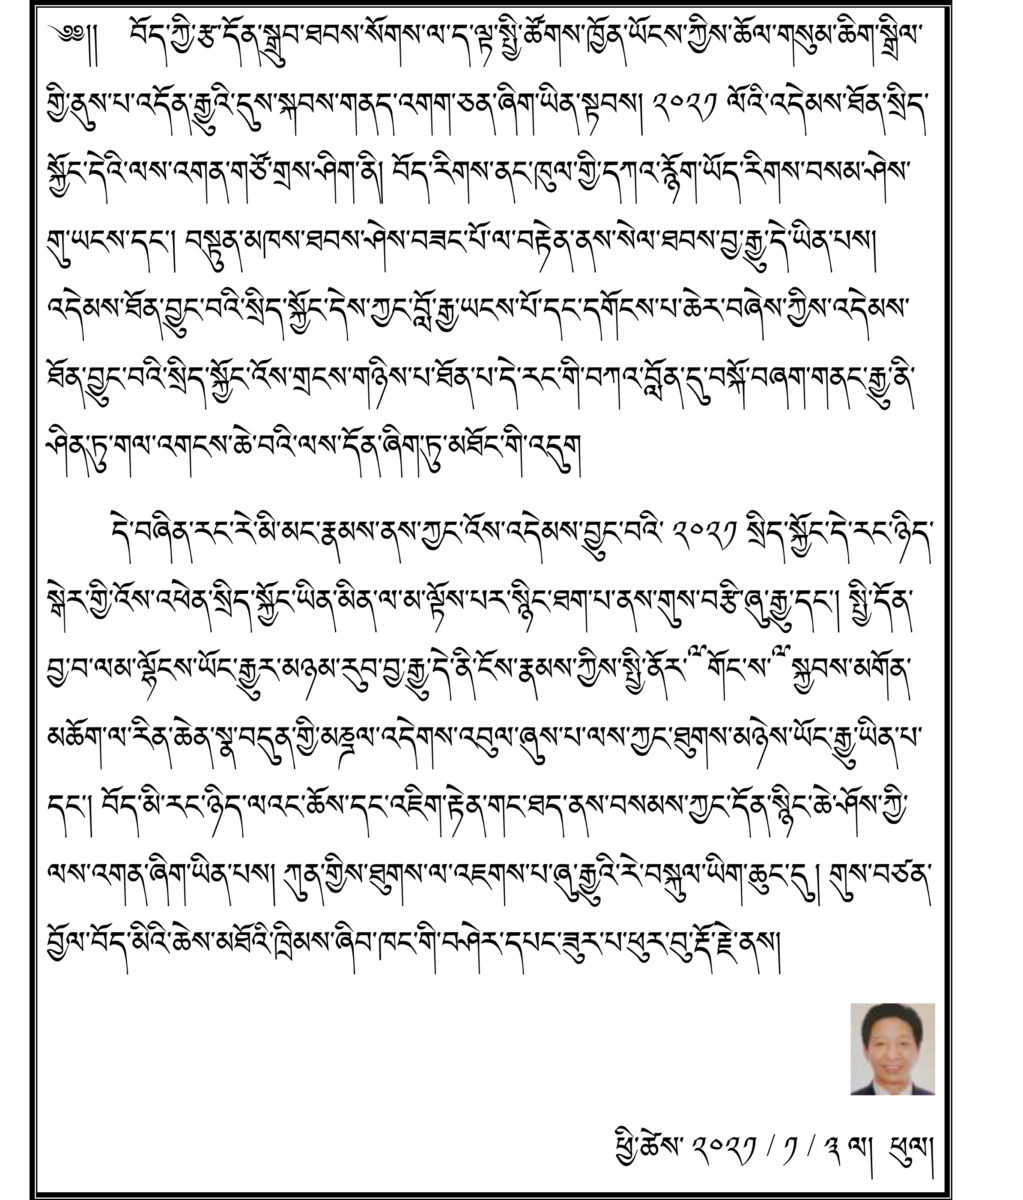 ༄༅།།   བོད་ཀྱི་རྩ་དོན་སྒྲུབ་ཐབས་སོགས་ལ་ད་ལྟ་སྤྱི་ཚོགས་ཁྱོན་ཡོངས་ཀྱིས་ཆོལ་གསུམ་ཆིག་སྒྲིལ་
གྱི་ནུས་པ་འདོན་རྒྱུའི་དུས་སྐབས་གནད་འགག་ཅན་ཞིག་ཡིན་སྟབས། ༢༠༢༡ ལོའི་འདེམས་ཐོན་སྲིད་
སྐྱོང་དེའི་ལས་འགན་གཙོ་གྲས་ཤིག་ནི། བོད་རིགས་ནང་ཁུལ་གྱི་དཀའ་རྙོག་ཡོད་རིགས་བསམ་ཤེས་
གུ་ཡངས་དང་། བསྟུན་མཁས་ཐབས་ཤེས་བཟང་པོ་ལ་བརྟེན་ནས་སེལ་ཐབས་བྱ་རྒྱུ་དེ་ཡིན་པས།
འདེམས་ཐོན་བྱུང་བའི་སྲིད་སྐྱོང་དེས་ཀྱང་བློ་རྒྱ་ཡངས་པོ་དང་དགོངས་པ་ཆེར་བཞེས་ཀྱིས་འདེམས་
ཐོན་བྱུང་བའི་སྲིད་སྐྱོང་འོས་གྲངས་གཉིས་པ་ཐོན་པ་དེ་རང་གི་བཀའ་བློན་དུ་བསྐོ་བཞག་གནང་རྒྱུ་ནི་
ཤིན་ཏུ་གལ་འགངས་ཆེ་བའི་ལས་དོན་ཞིག་ཏུ་མཐོང་གི་འདུག
དེ་བཞིན་རང་རེ་མི་མང་རྣམས་ནས་ཀྱང་འོས་འདེམས་བྱུང་བའི་ ༢༠༢༡ སྲིད་སྐྱོང་དེ་རང་ཉིད་
སྒེར་གྱི་འོས་འཕེན་སྲིད་སྐྱོང་ཡིན་མིན་ལ་མ་ལྟོས་པར་སྙིང་ཐག་པ་ནས་གུས་བརྩི་ཞུ་རྒྱུ་དང་། སྤྱི་དོན་
བྱ་བ་ལམ་ལྷོངས་ཡོང་རྒྱུར་མཉམ་རུབ་བྱ་རྒྱུ་དེ་ནི་ངོས་རྣམས་ཀྱིས་སྤྱི་ནོར་༸གོང་ས་༸སྐྱབས་མགོན་
མཆོག་ལ་རིན་ཆེན་སྣ་བདུན་གྱི་མཎྜལ་འདེགས་འབུལ་ཞུས་པ་ལས་ཀྱང་ཐུགས་མཉེས་ཡོང་རྒྱུ་ཡིན་པ་
དང་། བོད་མི་རང་ཉིད་ལའང་ཆོས་དང་འཇིག་རྟེན་གང་ཐད་ནས་བསམས་ཀྱང་དོན་སྙིང་ཆེ་ཤོས་ཀྱི་
ལས་འགན་ཞིག་ཡིན་པས། ཀུན་གྱིས་ཐུགས་ལ་འཇགས་པ་ཞུ་རྒྱུའི་རེ་བསྐུལ་ཡིག་ཆུང་དུ། གུས་བཙན་
བྱོལ་བོད་མིའི་ཆེས་མཐོའི་ཁྲིམས་ཞིབ་ཁང་གི་བཤེར་དཔང་ཟུར་པ་ཕུར་བུ་རྡོ་རྗེ་ནས།
ཕྱི་ཚེས་ ༢༠༢༡ / ༡ / ༣ ལ།  ཕུལ།